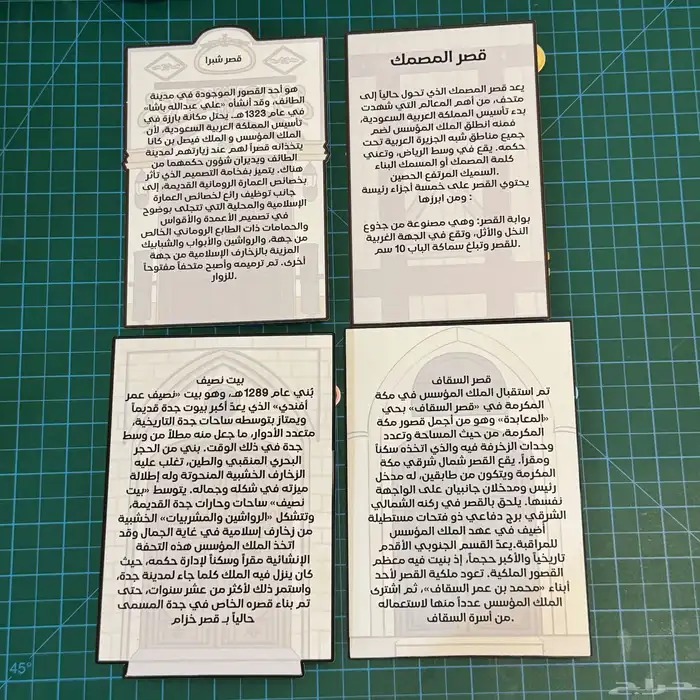 قصر المصمك
يعد قصر المصمك الذي تحول حالياً إلى
متحف، من أهم المعالم التي شهدت
بدء تأسيس المملكة العربية السعودية،
فمنه انطلق الملك المؤسس لضم
جميع مناطق شبه الجزيرة العربية تحت
حكمه. يقع في وسط الرياض، وتعني
كلمة المصمك أو المسمك البناء
السميك المرتفع الحصين.
يحتوي القصر على خمسة أجزاء رئيسة
ومن ابرزها :
بوابة القصر: وهي مصنوعة من جذوع
النخل والأثل، وتقع في الجهة الغربية
للقصر وتبلغ سماكة الباب 10 سم.
قصر شبرا
هو أحد القصور الموجودة في مدينة
الطائف، وقد أنشأه «علي عبدالله باشا»
في عام 1323هــ. يحتل مكانة بارزة في
تأسيس المملكة العربية السعودية، لأن
الملك المؤسس و الملك فيصل بن كانا
يتخذانه قصراً لهم عند زيارتهم لمدينة
الطائف ويديران شؤون حكمهما من
هناك. يتميز بفخامة التصميم الذي تأثر
بخصائص العمارة الرومانية القديمة، إلى
جانب توظيف رائع لخصائص العمارة
الإسلامية والمحلية التي تتجلى بوضوح
في تصميم الأعمدة والأقواس
والحمامات ذات الطابع الروماني الخالص
من جهة، والرواشين والأبواب والشبابيك
المزينة بالزخارف الإسلامية من جهة
أخرى. تم ترميمه وأصبح متحفاً مفتوحاً
للزوار.
قصر السقاف
تم استقبال الملك المؤسس في مكة
المكرمة في «قصر السقاف» بحي
«المعابدة» وهو من أجمل قصور مكة
المكرمة، من حيث المساحة وتعدد
وحدات الزخرفة فيه والذي اتخذه سكناً
ومقراً. يقع القصر شمال شرقي مكة
المكرمة ويتكون من طابقين، له مدخل
رئيس ومدخلان جانبيان على الواجهة
نفسها. يلحق بالقصر في ركنه الشمالي
الشرقي برج دفاعي ذو فتحات مستطيلة
أضيف في عهد الملك المؤسس
للمراقبة.يعدّ القسم الجنوبي الأقدم
تاريخياً والأكبر حجماً، إذ بنيت فيه معظم
القصور الملكية. تعود ملكية القصر لأحد
أبناء «محمد بن عمر السقاف»، ثم اشترى
الملك المؤسس عدداً منها لاستعماله
من أسرة السقاف.
بيت نصيف
بُني عام 1289هــ، وهو بيت «نصيف عمر
أفندي» الذي يعدّ أكبر بيوت جدة قديماً
ويمتاز بتوسطه ساحات جدة التاريخية،
متعدد الأدوار، ما جعل منه مطلاً من وسط
جدة في ذلك الوقت. بني من الحجر
البحري المنقبي والطين، تغلب عليه
الزخارف الخشبية المنحوتة وله إطلالة
ميزته في شكله وجماله. يتوسط «بيت
نصيف» ساحات وحارات جدة القديمة،
وتتشكل «الرواشين والمشربيات» الخشبية
من زخارف إسلامية في غاية الجمال وقد
اتخذ الملك المؤسس هذه التحفة
الإنشائية مقراً وسكناً لإدارة حكمه، حيث
كان ينزل فيه الملك كلما جاء لمدينة جدة،
واستمر ذلك لأكثر من عشر سنوات، حتى
تم بناء قصره الخاص في جدة المسمى
حالياً بـ قصر خزام
45°
حراج